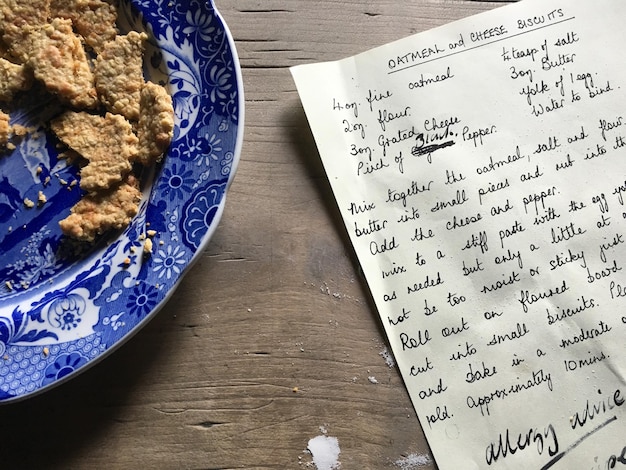 OATMEAL and CHEESE BISCUITS
4 oz. fine oatmeal
2oz. flour.
3oz. Grated Cheese
Pinch of Pepper.
¼ teasp of salt
3oz. Butter
Yolk of 1 egg.
Water to bind.
Mix together the oatmeal, salt and flour.
butter into small pieces and rub into th
Add the cheese and pepper.
mix to a stiff paste with the egg yo
as needed but only a little at a
not be too moist or sticky just
Roll out on floured board
cut into small biscuits. Pl
and bake in a moderate o
Approximately 10mins.
Allergy advice